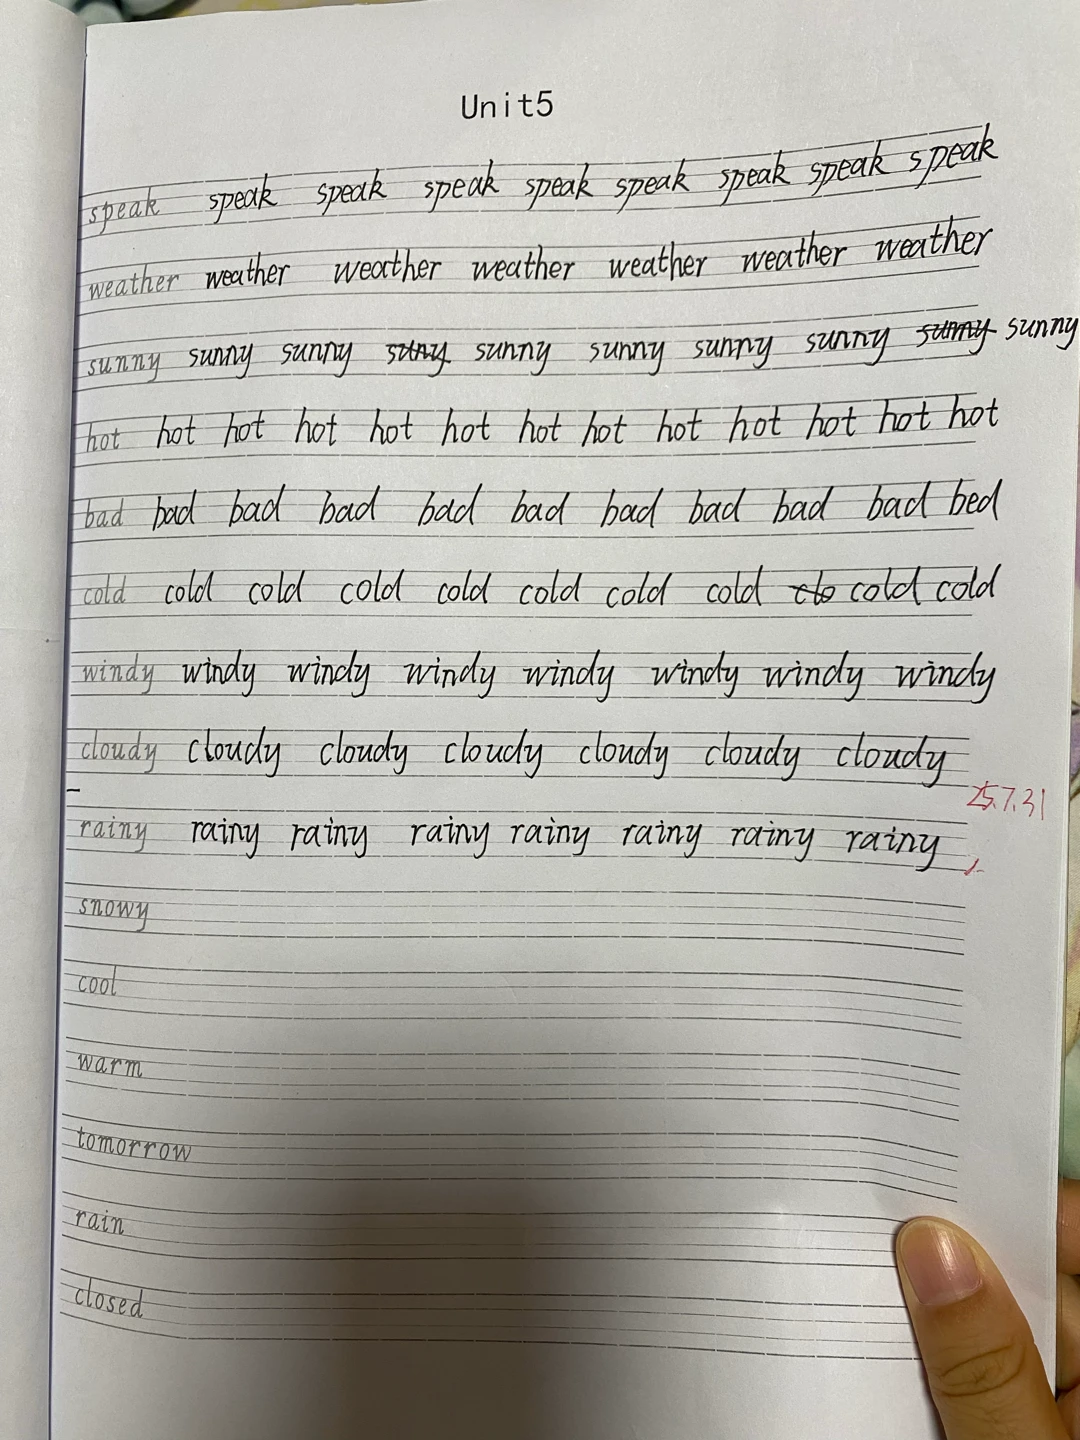 Unit5
speak speak speak speak speak speak speak speak speak
weather weather weather weather weather weather weather
sunny sunny sunny suny sunny sunny sunny sunny sunny sunny
hot hot hot hot hot hot hot hot hot hot hot hot hot
bad bad bad bad bad bad bad bad bad bad bed
cold cold cold cold cold cold cold cold clo cold cold
windy windy windy windy windy windy windy windy
cloudy cloudy cloudy cloudy cloudy cloudy cloudy
25.7.31
rainy rainy rainy rainy rainy rainy rainy rainy
snowy
cool
warm
tomorrow
rain
closed